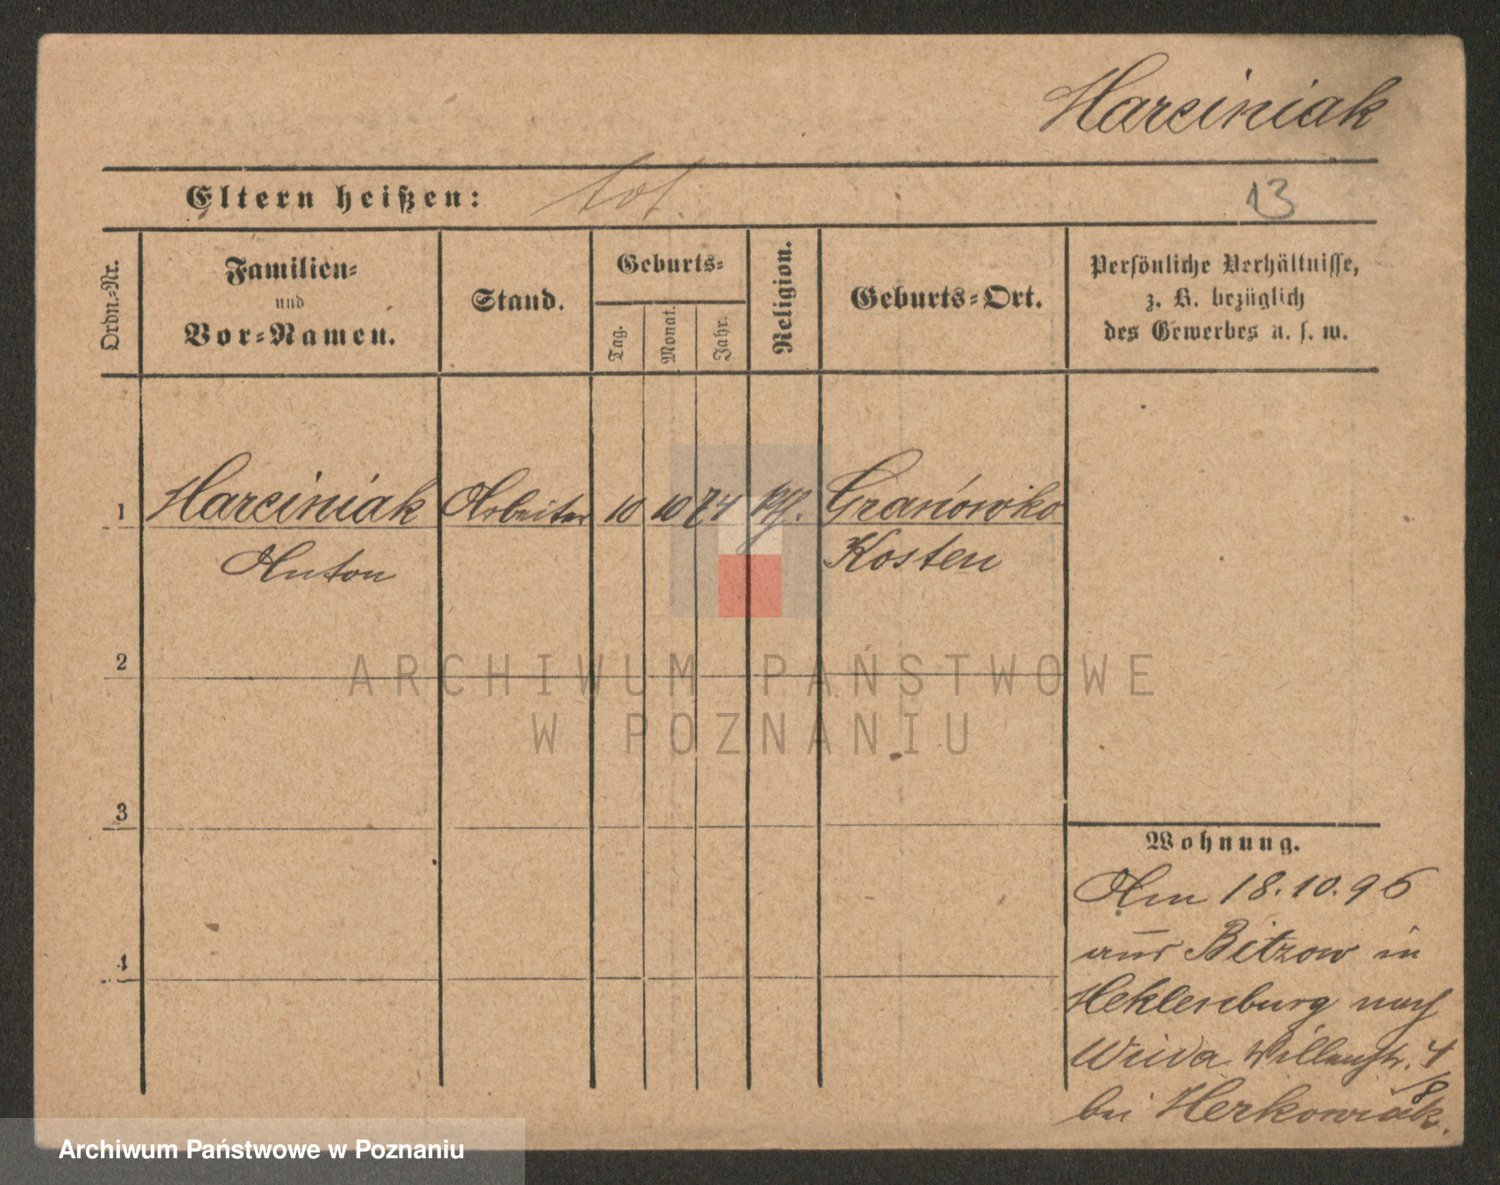 Marciniak
Eltern heißen: tot.
13
Ordn.-Nr.
Familien-
und
Vor-Namen.
Stand.
Geburts-
Tag.
Monat.
Jahr.
Religion.
Geburts-Ort.
Persönliche Verhältnisse,
z. B. bezüglich
des Gewerbes u. s. w.
1 Marciniak Arbeiter 10 10 74 kth. Granówko
Anton Kosten
2
3
4
Wohnung.
Am 18.10.96
aus Bitzow in
Meklenburg nach
Wilda Villenstr. 4
/8
bei Merkowiak.
ARCHIWUM PAŃSTWOWE
W POZNANIU
Archiwum Państwowe w Poznaniu